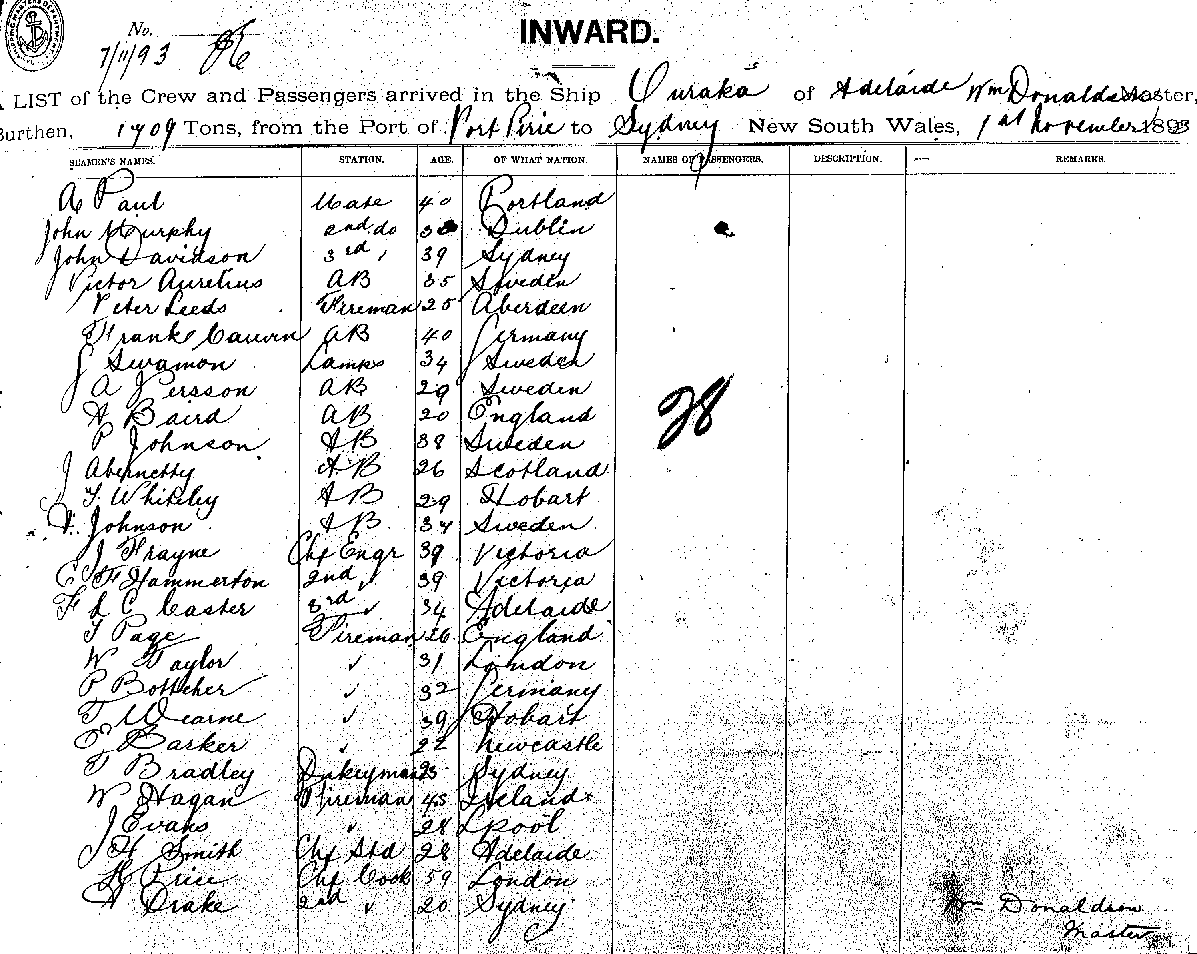 No.
7/11/93
INWARD.
A LIST of the Crew and Passengers arrived in the Ship Ouraka of Adelaide Wm Donaldson Master,
Burthen, 1909 Tons, from the Port of Port Pirie to Sydney New South Wales, 1st November 1893
SEAMEN'S NAMES. STATION. AGE. OF WHAT NATION. NAMES OF PASSENGERS. DESCRIPTION. REMARKS.
A Paul Mate 40 Portland
John Murphy 2nd do Dublin
John Davidson 3rd 39 Sydney
Victor Aurelius AB 35 Sweden
Peter Leeds Fireman 25 Aberdeen
Frank AB 40 Germany
J Swamon Lamps 34 Sweden
J A Persson AB 29 Sweden
A Baird AB 20 England
28
P Johnson AB 38 Sweden
J Abernetty AB 26 Scotland
T. Whiteley AB 29 Hobart
Johnson AB 34 Sweden
J Frayne Chf Engr 39 Victoria
C F Hammerton 2nd " 39 Victoria
F L C Caster 3rd " 34 Adelaide
T Page Fireman 26 England
W Taylor " 31 London
P Bottcher " 32 Germany
T Wearne " 39 Hobart
Barker " 22 Newcastle
T Bradley Dnkeyman 23 Sydney
W Hagan Fireman 45 Ireland
J Evans " 28 Lpool
J H Smith Chf Std 28 Adelaide
Price Chf Cook 59 London
Drake 2nd " 20 Sydney
Wm Donaldson
Master